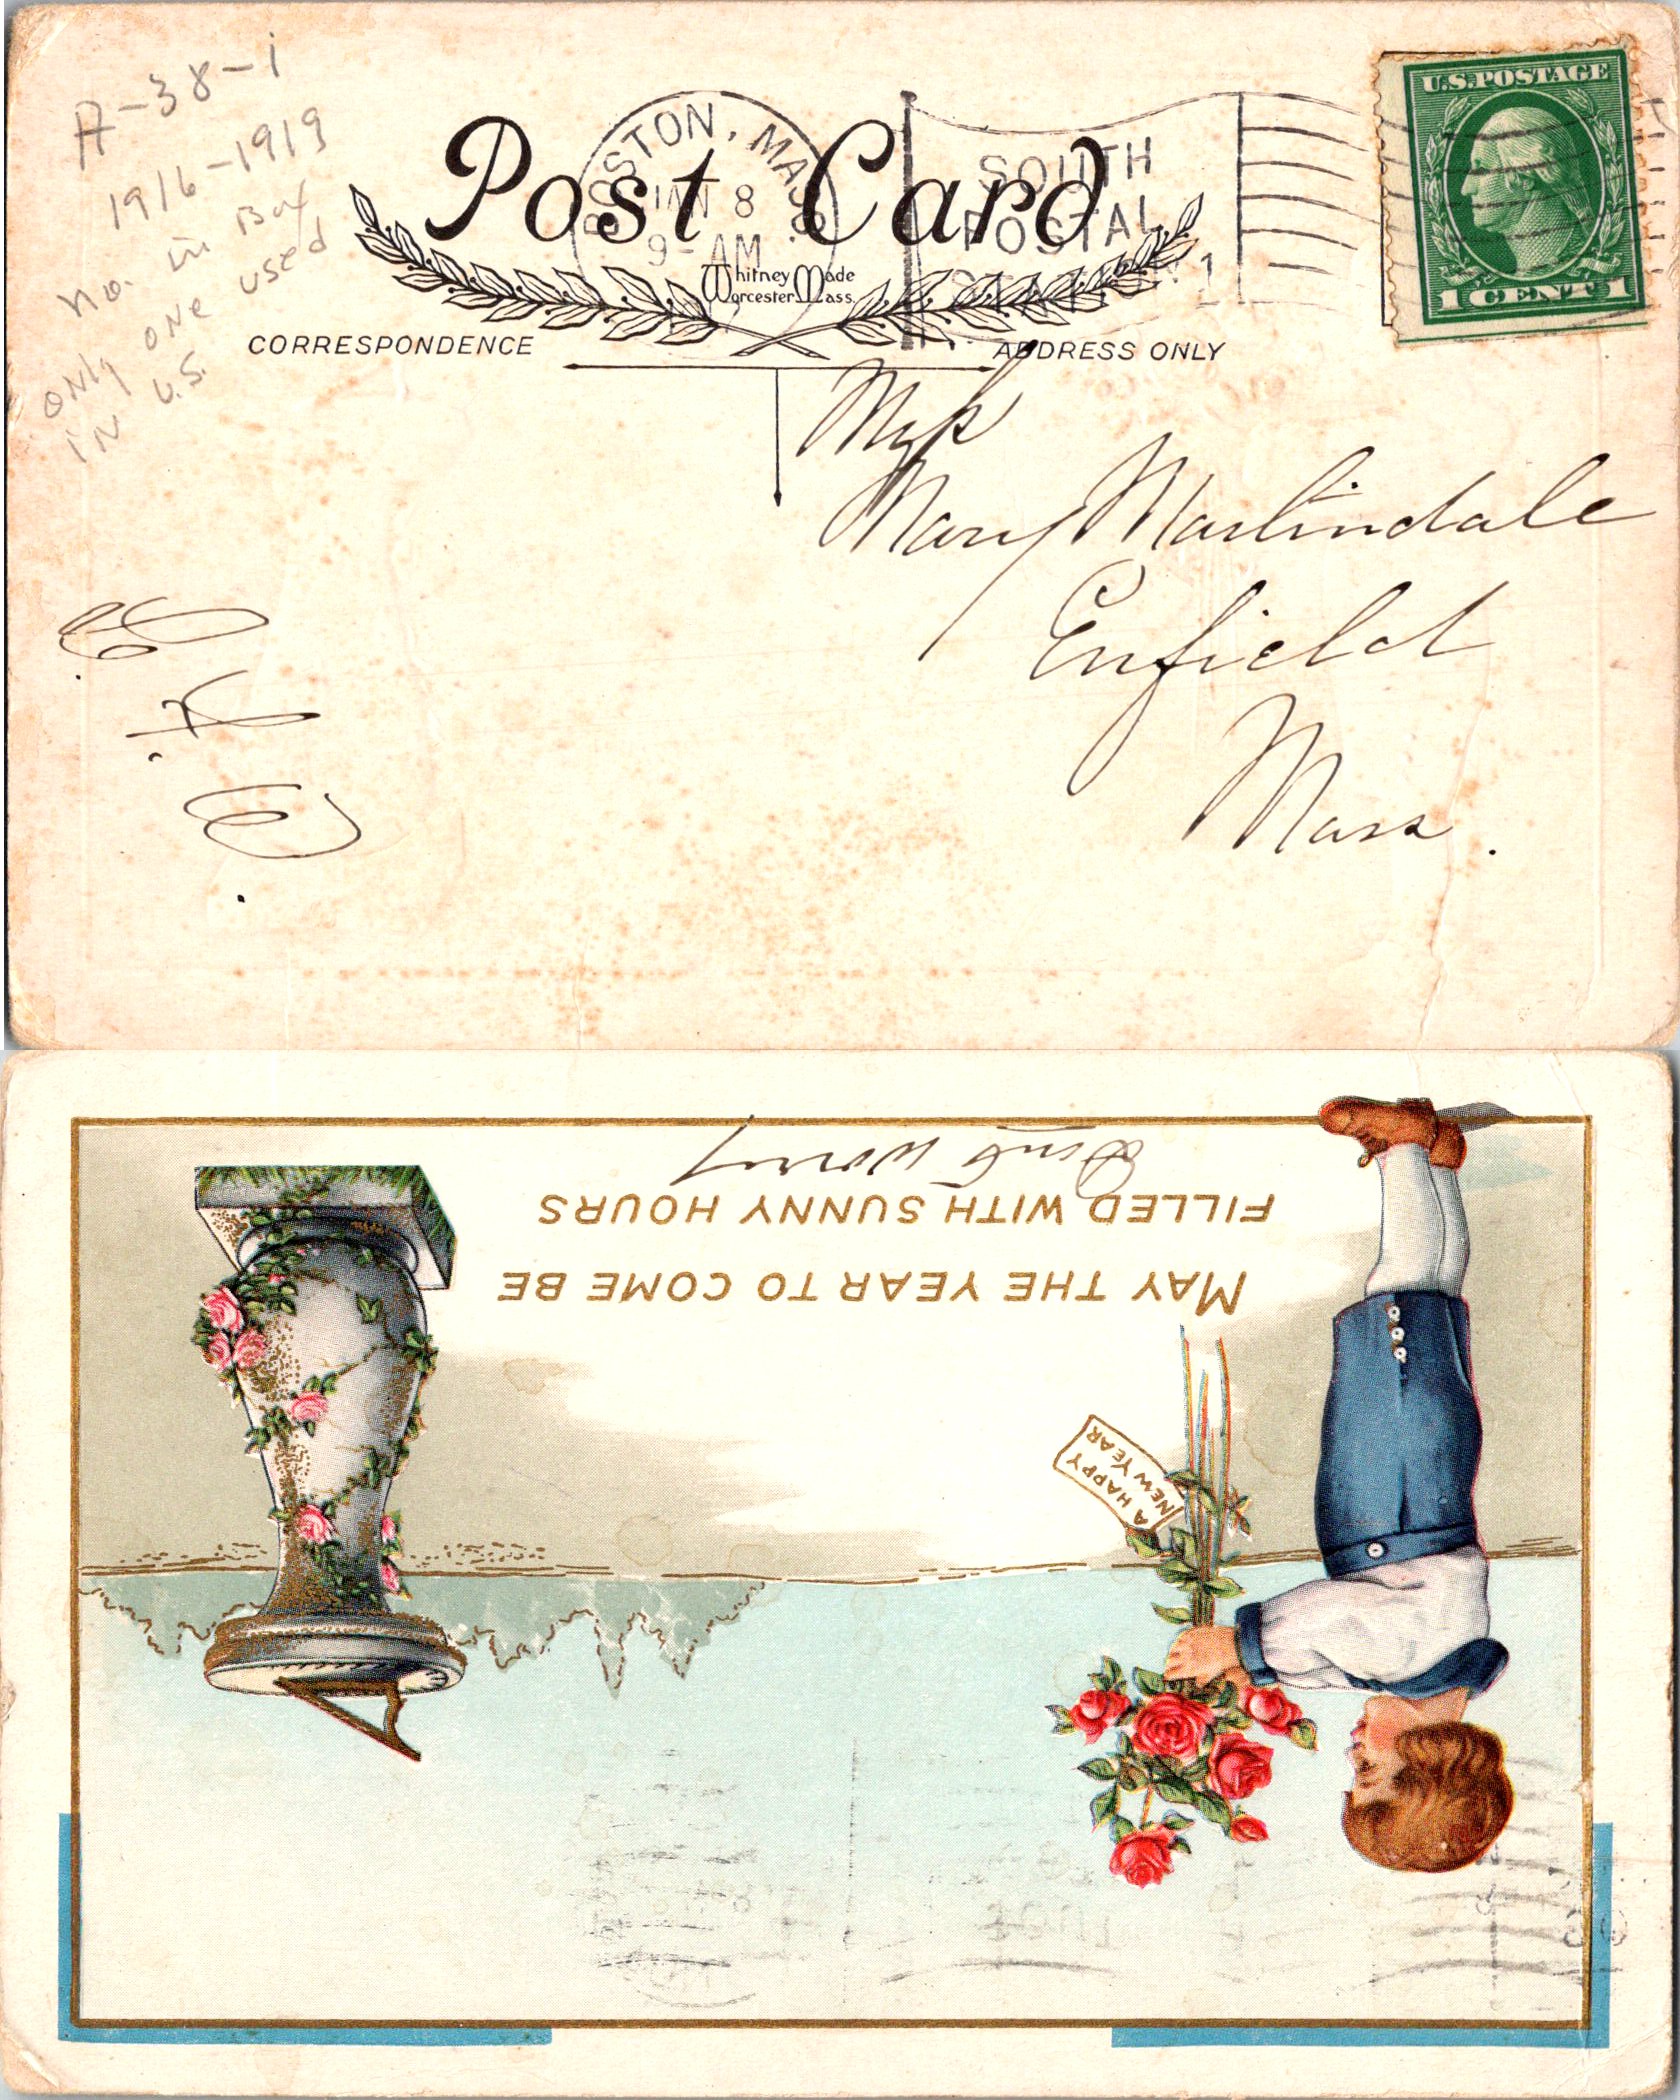 A-38-1
1916-1919
no. in Box
only one used
in U.S.
Post Card
Whitney Made
Worcester Mass.
BOSTON, MASS.
JAN 8
9-AM
SOUTH
POSTAL
STATION 1
U.S. POSTAGE
1 CENT 1
CORRESPONDENCE
ADDRESS ONLY
Mary Martindale
Enfield
Mass.
MAY THE YEAR TO COME BE
FILLED WITH SUNNY HOURS
Don't worry
A HAPPY
NEW YEAR